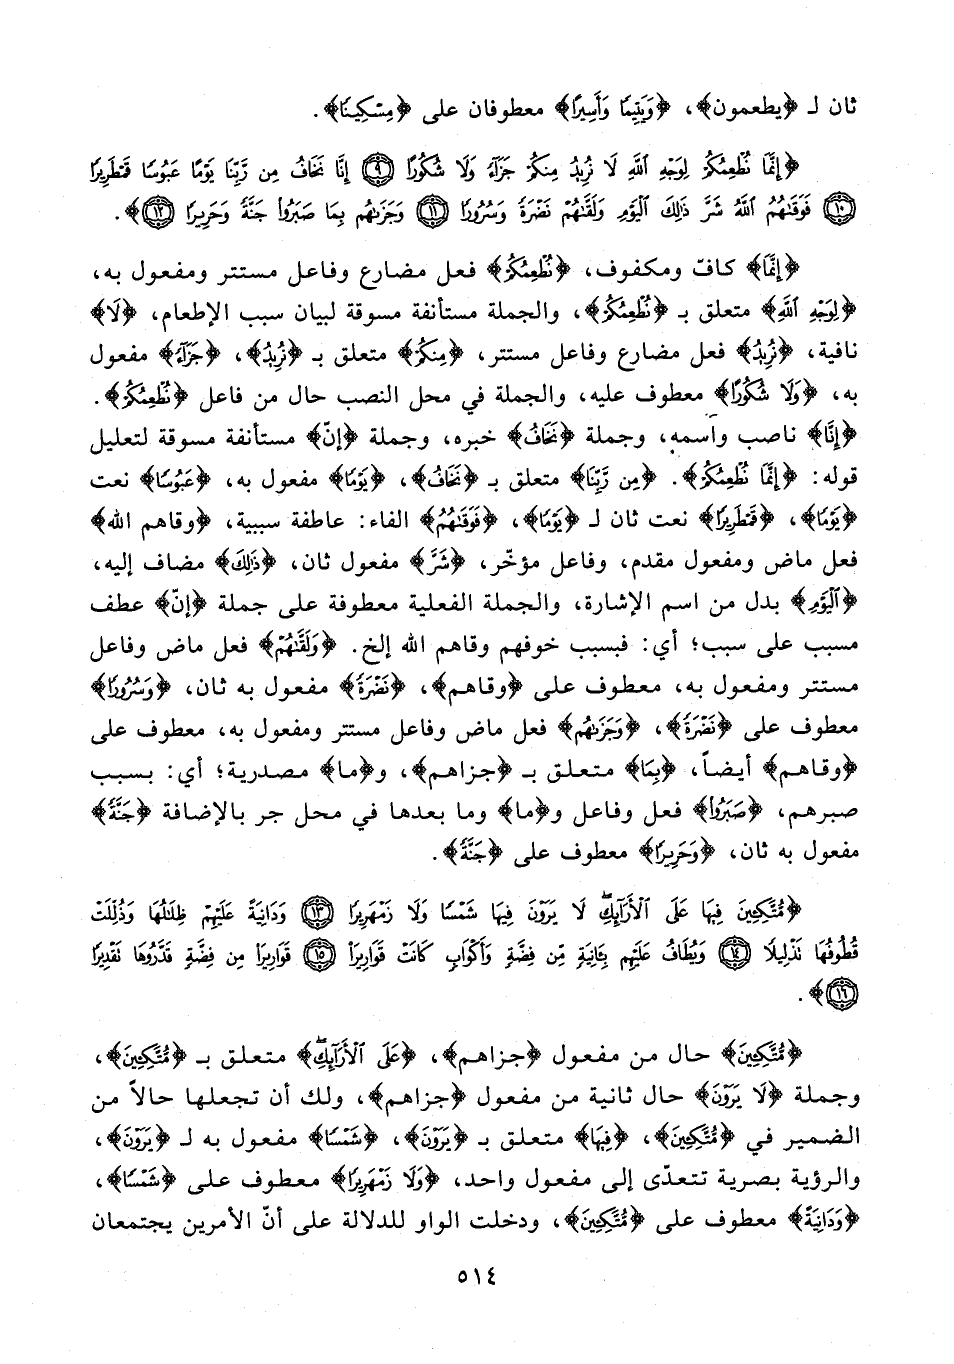 ثان لـ ﴿يطعمون﴾، ﴿وَيَتِيمًا وَأَسِيرًا﴾ معطوفان على ﴿مِسْكِينًا﴾.
﴿إِنَّمَا نُطْعِمُكُمْ لِوَجْهِ ٱللَّهِ لَا نُرِيدُ مِنكُمْ جَزَآءً وَلَا شُكُورًا ﴿٩﴾ إِنَّا نَخَافُ مِن رَّبِّنَا يَوْمًا عَبُوسًا قَمْطَرِيرًا
﴿١٠﴾ فَوَقَىٰهُمُ ٱللَّهُ شَرَّ ذَٰلِكَ ٱلْيَوْمِ وَلَقَّىٰهُمْ نَضْرَةً وَسُرُورًا ﴿١١﴾ وَجَزَىٰهُم بِمَا صَبَرُوا۟ جَنَّةً وَحَرِيرًا ﴿١٢﴾﴾.
﴿إِنَّمَا﴾ كافّ ومكفوف، ﴿نُطْعِمُكُمْ﴾ فعل مضارع وفاعل مستتر ومفعول به،
﴿لِوَجْهِ ٱللَّهِ﴾ متعلق بـ ﴿نُطْعِمُكُمْ﴾، والجملة مستأنفة مسوقة لبيان سبب الإطعام، ﴿لَا﴾
نافية، ﴿نُرِيدُ﴾ فعل مضارع وفاعل مستتر، ﴿مِنكُمْ﴾ متعلق بـ ﴿نُرِيدُ﴾، ﴿جَزَآءً﴾ مفعول
به، ﴿وَلَا شُكُورًا﴾ معطوف عليه، والجملة في محل النصب حال من فاعل ﴿نُطْعِمُكُمْ﴾.
﴿إِنَّا﴾ ناصب واسمه، وجملة ﴿نَخَافُ﴾ خبره، وجملة ﴿إنّ﴾ مستأنفة مسوقة لتعليل
قوله: ﴿إِنَّمَا نُطْعِمُكُمْ﴾. ﴿مِن رَّبِّنَا﴾ متعلق بـ ﴿نَخَافُ﴾، ﴿يَوْمًا﴾ مفعول به، ﴿عَبُوسًا﴾ نعت
﴿يَوْمًا﴾، ﴿قَمْطَرِيرًا﴾ نعت ثان لـ ﴿يَوْمًا﴾، ﴿فَوَقَىٰهُمُ﴾ الفاء: عاطفة سببية، ﴿وقاهم الله﴾
فعل ماض ومفعول مقدم، وفاعل مؤخّر، ﴿شَرَّ﴾ مفعول ثان، ﴿ذَٰلِكَ﴾ مضاف إليه،
﴿ٱلْيَوْمِ﴾ بدل من اسم الإشارة، والجملة الفعلية معطوفة على جملة ﴿إنّ﴾ عطف
مسبب على سبب؛ أي: فبسبب خوفهم وقاهم الله إلخ. ﴿وَلَقَّىٰهُمْ﴾ فعل ماض وفاعل
مستتر ومفعول به، معطوف على ﴿وقاهم﴾، ﴿نَضْرَةً﴾ مفعول به ثان، ﴿وَسُرُورًا﴾
معطوف على ﴿نَضْرَةً﴾، ﴿وَجَزَىٰهُم﴾ فعل ماض وفاعل مستتر ومفعول به، معطوف على
﴿وقاهم﴾ أيضاً، ﴿بِمَا﴾ متعلق بـ ﴿جزاهم﴾، و﴿ما﴾ مصدرية؛ أي: بسبب
صبرهم، ﴿صَبَرُوا۟﴾ فعل وفاعل و﴿ما﴾ وما بعدها في محل جر بالإضافة ﴿جَنَّةً﴾
مفعول به ثان، ﴿وَحَرِيرًا﴾ معطوف على ﴿جَنَّةً﴾.
﴿مُّتَّكِـِٔينَ فِيهَا عَلَى ٱلْأَرَآئِكِ ۖ لَا يَرَوْنَ فِيهَا شَمْسًا وَلَا زَمْهَرِيرًا ﴿١٣﴾ وَدَانِيَةً عَلَيْهِمْ ظِلَـٰلُهَا وَذُلِّلَتْ
قُطُوفُهَا تَذْلِيلًا ﴿١٤﴾ وَيُطَافُ عَلَيْهِم بِـَٔانِيَةٍ مِّن فِضَّةٍ وَأَكْوَابٍ كَانَتْ قَوَارِيرَا۠ ﴿١٥﴾ قَوَارِيرَا۟ مِن فِضَّةٍ قَدَّرُوهَا تَقْدِيرًا
﴿١٦﴾﴾.
﴿مُّتَّكِـِٔينَ﴾ حال من مفعول ﴿جزاهم﴾، ﴿عَلَى ٱلْأَرَآئِكِ ۖ﴾ متعلق بـ ﴿مُّتَّكِـِٔينَ﴾،
وجملة ﴿لَا يَرَوْنَ﴾ حال ثانية من مفعول ﴿جزاهم﴾، ولك أن تجعلها حالاً من
الضمير في ﴿مُّتَّكِـِٔينَ﴾، ﴿فِيهَا﴾ متعلق بـ ﴿يَرَوْنَ﴾، ﴿شَمْسًا﴾ مفعول به لـ ﴿يَرَوْنَ﴾،
والرؤية بصرية تتعدّى إلى مفعول واحد، ﴿وَلَا زَمْهَرِيرًا﴾ معطوف على ﴿شَمْسًا﴾،
﴿وَدَانِيَةً﴾ معطوف على ﴿مُّتَّكِـِٔينَ﴾، ودخلت الواو للدلالة على أنّ الأمرين يجتمعان
٥١٤